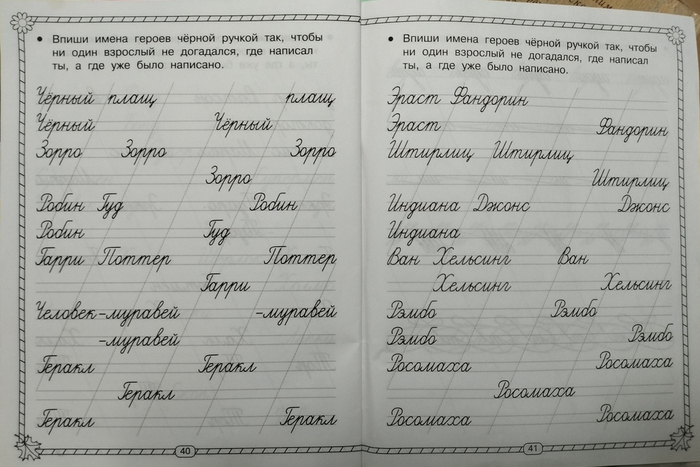 • Впиши имена героев чёрной ручкой так, чтобы
ни один взрослый не догадался, где написал
ты, а где уже было написано.
Чёрный плащ плащ
Чёрный Чёрный
Зорро Зорро Зорро
Зорро
Робин Гуд Робин
Робин Гуд
Гарри Поттер Поттер
Гарри
Человек-муравей -муравей
-муравей
Геракл Геракл
Геракл
Геракл Геракл
40
• Впиши имена героев чёрной ручкой так, чтобы
ни один взрослый не догадался, где написал
ты, а где уже было написано.
Эраст Фандорин
Эраст Фандорин
Штирлиц Штирлиц
Штирлиц
Индиана Джонс Джонс
Индиана
Ван Хельсинг Ван
Хельсинг Хельсинг
Рэмбо Рэмбо
Рэмбо Рэмбо
Росомаха Росомаха
Росомаха
Росомаха Росомаха
41